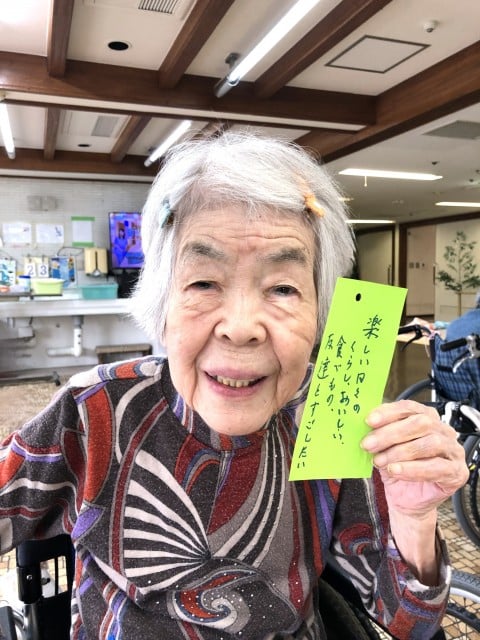 楽しい日々の
くらし、おいしい、
食べもの、
友達とすごしたい
23